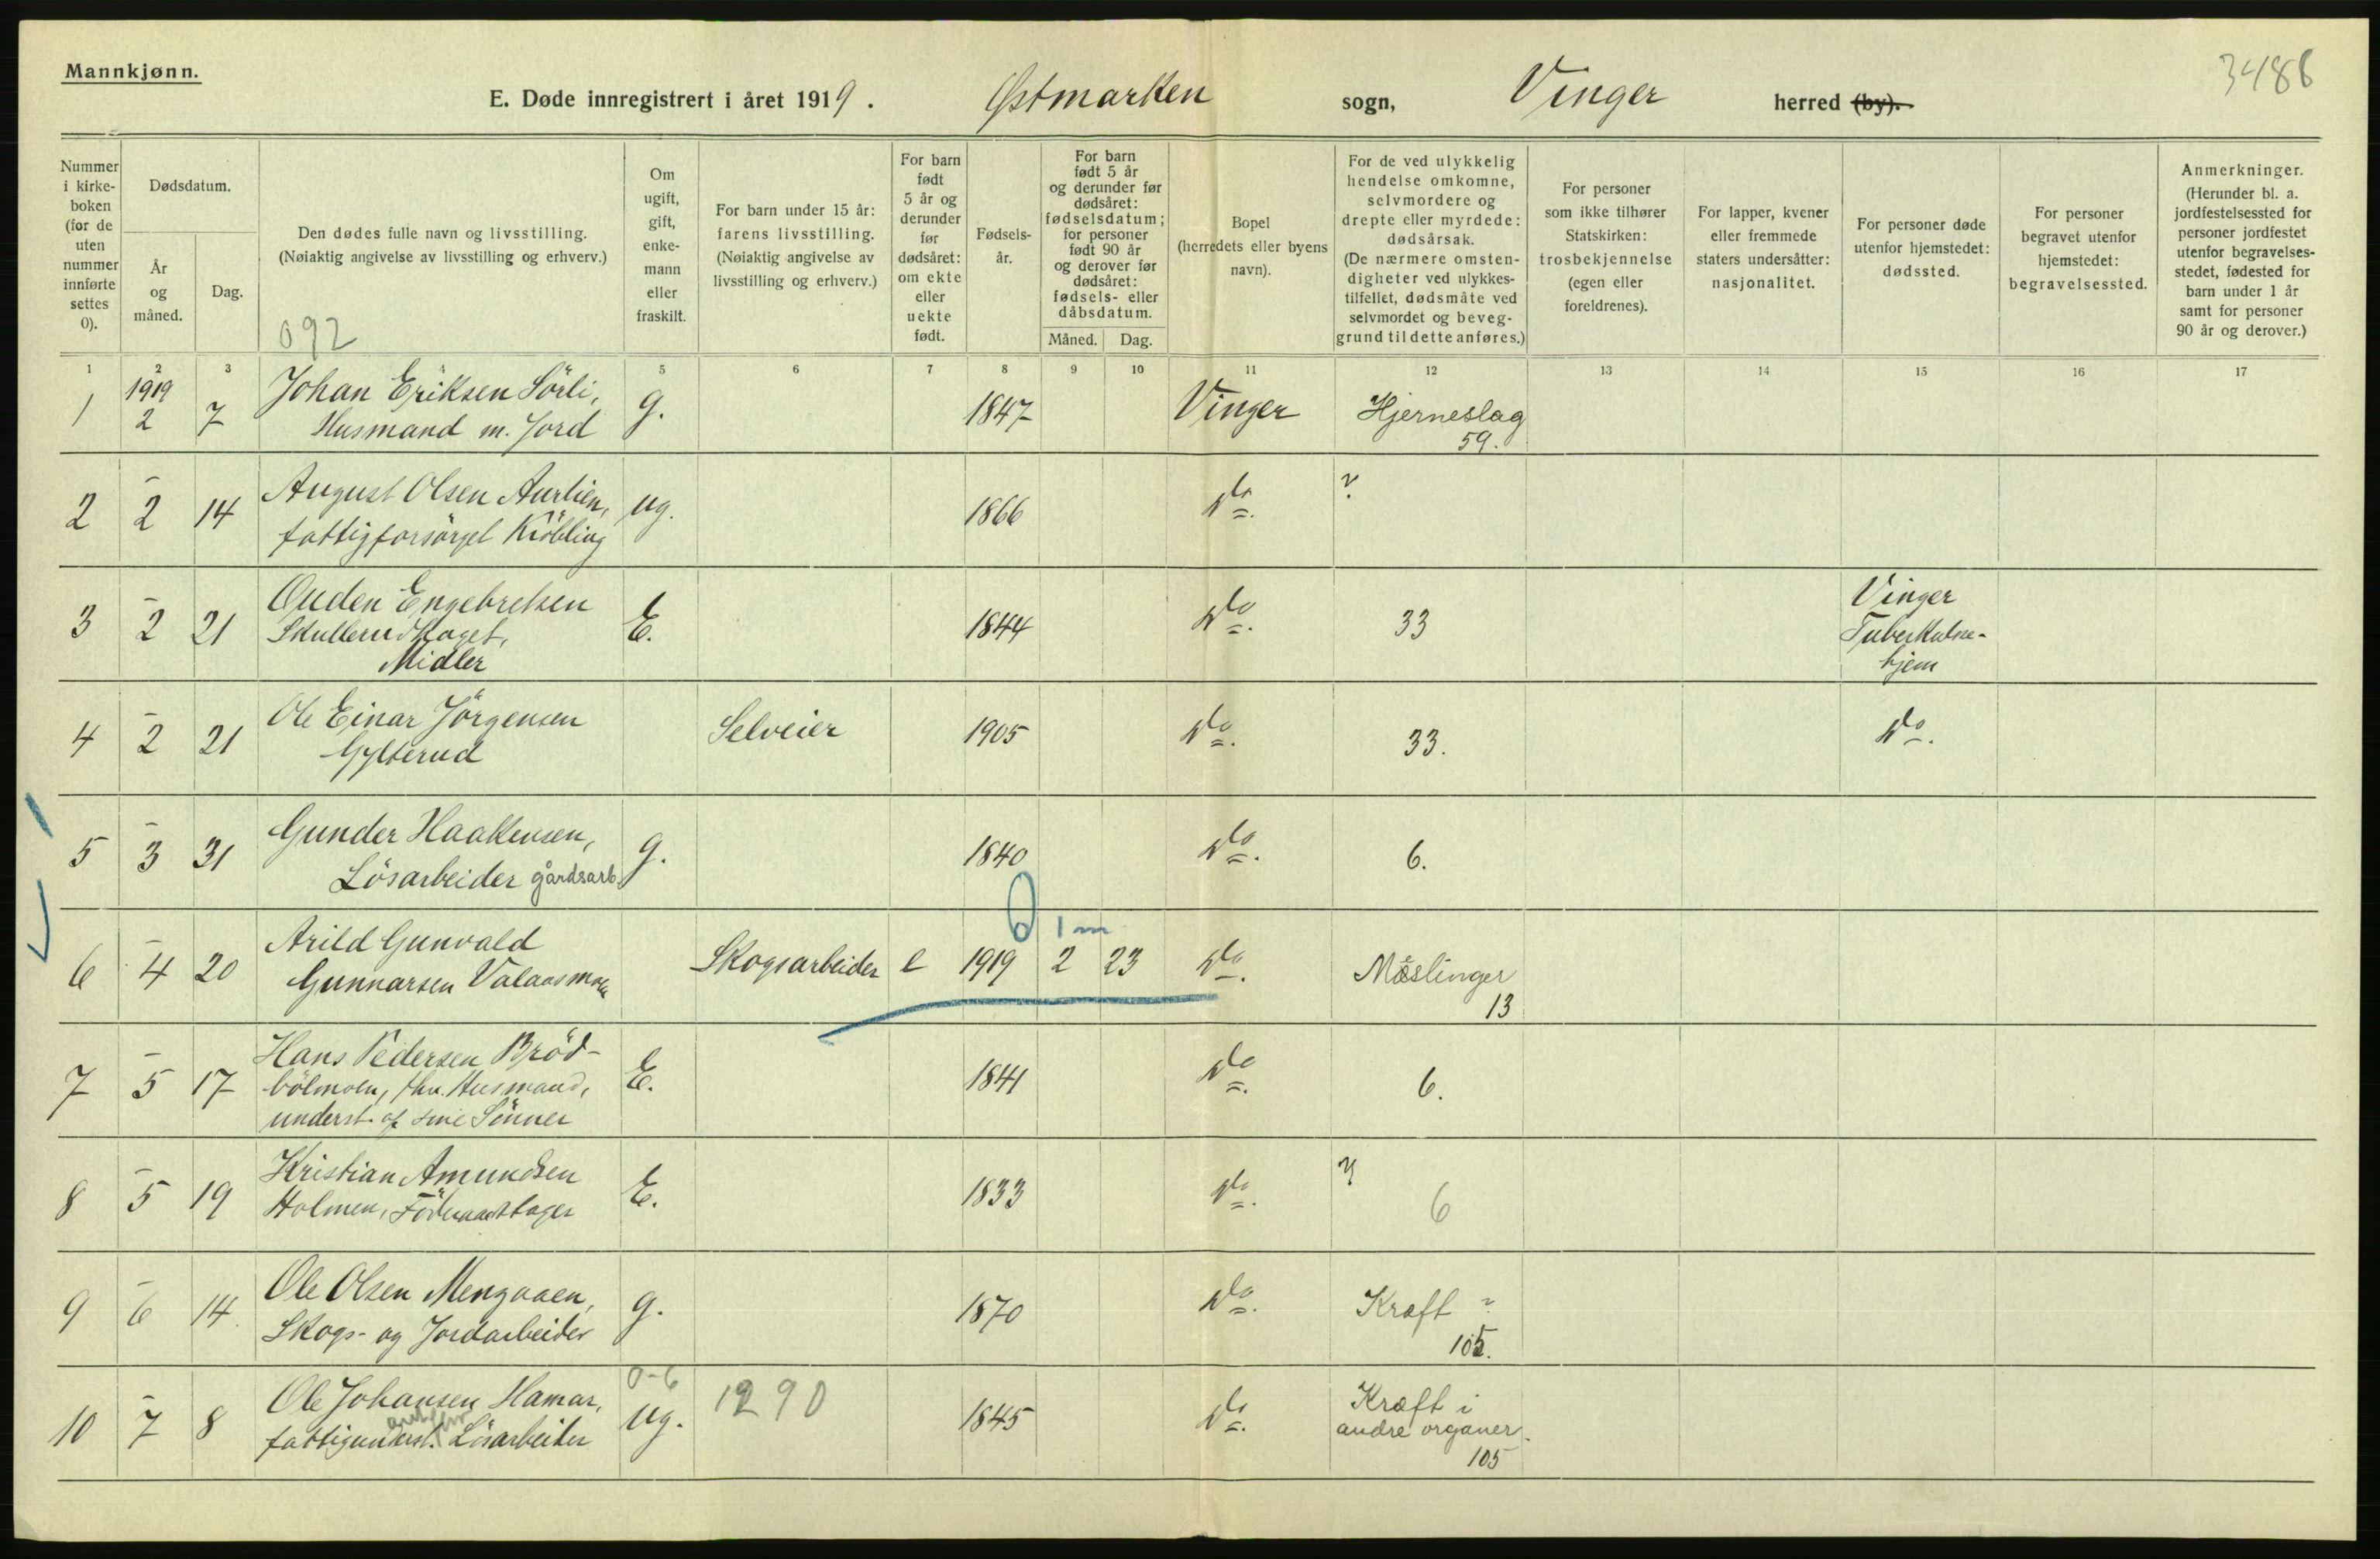 Mannkjønn.
3486
E. Døde innregistrert i året 1919. Østmarken sogn, Vinger herred (by).
Nummer i kirke-boken (for de uten nummer innførte settes 0).
Dødsdatum.
År og måned.
Dag.
Den dødes fulle navn og livsstilling.
(Nøiaktig angivelse av livsstilling og erhverv.)
092
Om ugift, gift, enke-mann eller fraskilt.
For barn under 15 år: farens livsstilling.
(Nøiaktig angivelse av livsstilling og erhverv.)
For barn født 5 år og derunder før dødsåret: om ekte eller uekte født.
Fødsels-år.
For barn født 5 år og derunder før dødsåret: fødselsdatum; for personer født 90 år og derover før dødsåret: fødsels- eller dåbsdatum.
Måned. Dag.
Bopel (herredets eller byens navn).
For de ved ulykkelig hendelse omkomne, selvmordere og drepte eller myrdede: dødsårsak.
(De nærmere omsten-digheter ved ulykkes-tilfellet, dødsmåte ved selvmordet og beveg-grund til dette anføres.)
For personer som ikke tilhører Statskirken: trosbekjennelse (egen eller foreldrenes).
For lapper, kvener eller fremmede staters undersåtter: nasjonalitet.
For personer døde utenfor hjemstedet: dødssted.
For personer begravet utenfor hjemstedet: begravelsessted.
Anmerkninger.
(Herunder bl. a. jordfestelsessted for personer jordfestet utenfor begravelses-stedet, fødested for barn under 1 år samt for personer 90 år og derover.)
1 2 3 5 6 7 8 9 10 11 12 13 14 15 16 17
1 1919 2 7 Johan Eriksen Sörli, g. 1847 Vinger Hjerneslag
Husmand m. Jord 59.
2 - 2 14 August Olsen Aurlien, ug. 1866 do. ?
fattigforsörget Kröbling
3 - 2 21 Ouden Engebretsen E. 1844 do. 33 Vinger
Skullerudskoget, Tuberkulose-
Midler hjem
4 - 2 21 Ole Einar Jörgensen Selveier 1905 do. 33. do.
Gylterud
5 - 3 31 Gunder Haakensen, g. 1840 do. 6.
Lösarbeider gårdsarb.
0 1 m
6 - 4 20 Arild Gunvald Skogsarbeider e 1919 2 23 do. Mæslinger
Gunnarsen Valaasmoen 13
7 - 5 17 Hans Pedersen Bröd- E. 1841 do. 6.
bölmoen, fhv. Husmand,
underst. af sine Sönner
8 - 5 19 Kristian Amundsen E. 1833 do. ? 6
Holmen, Föderaadstager
9 - 6 14. Ole Olsen Mengaaen, g. 1870 do. Kræft ?
Skogs- og Jordarbeider 105.
0-6 1290
10 - 7 8 Ole Johansen Hamar, ug. 1845 do. Kræft i
fattigunderst. Lösarbeider andre organer.
105